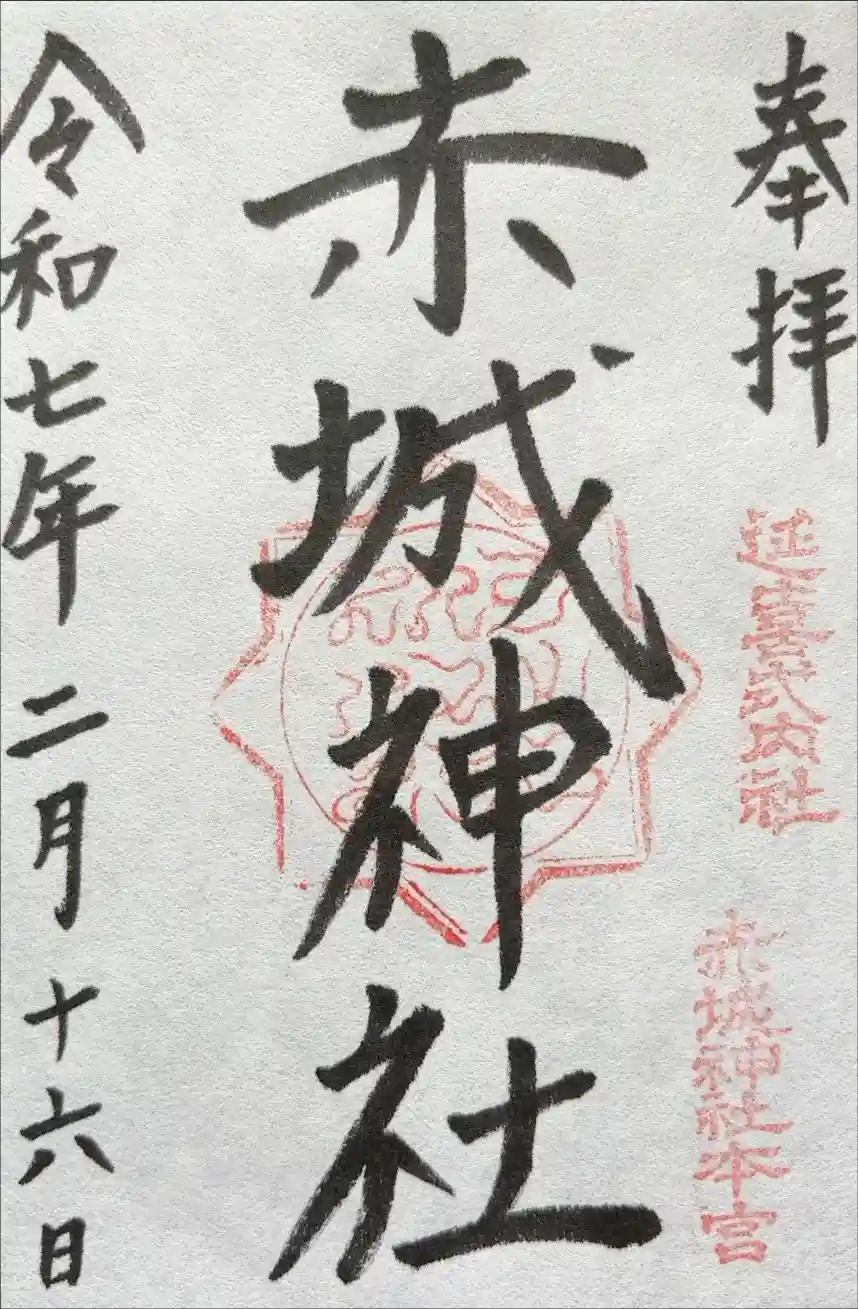 奉拝
延喜式内社
赤城神社本宮
赤城神社
令和七年二月十六日